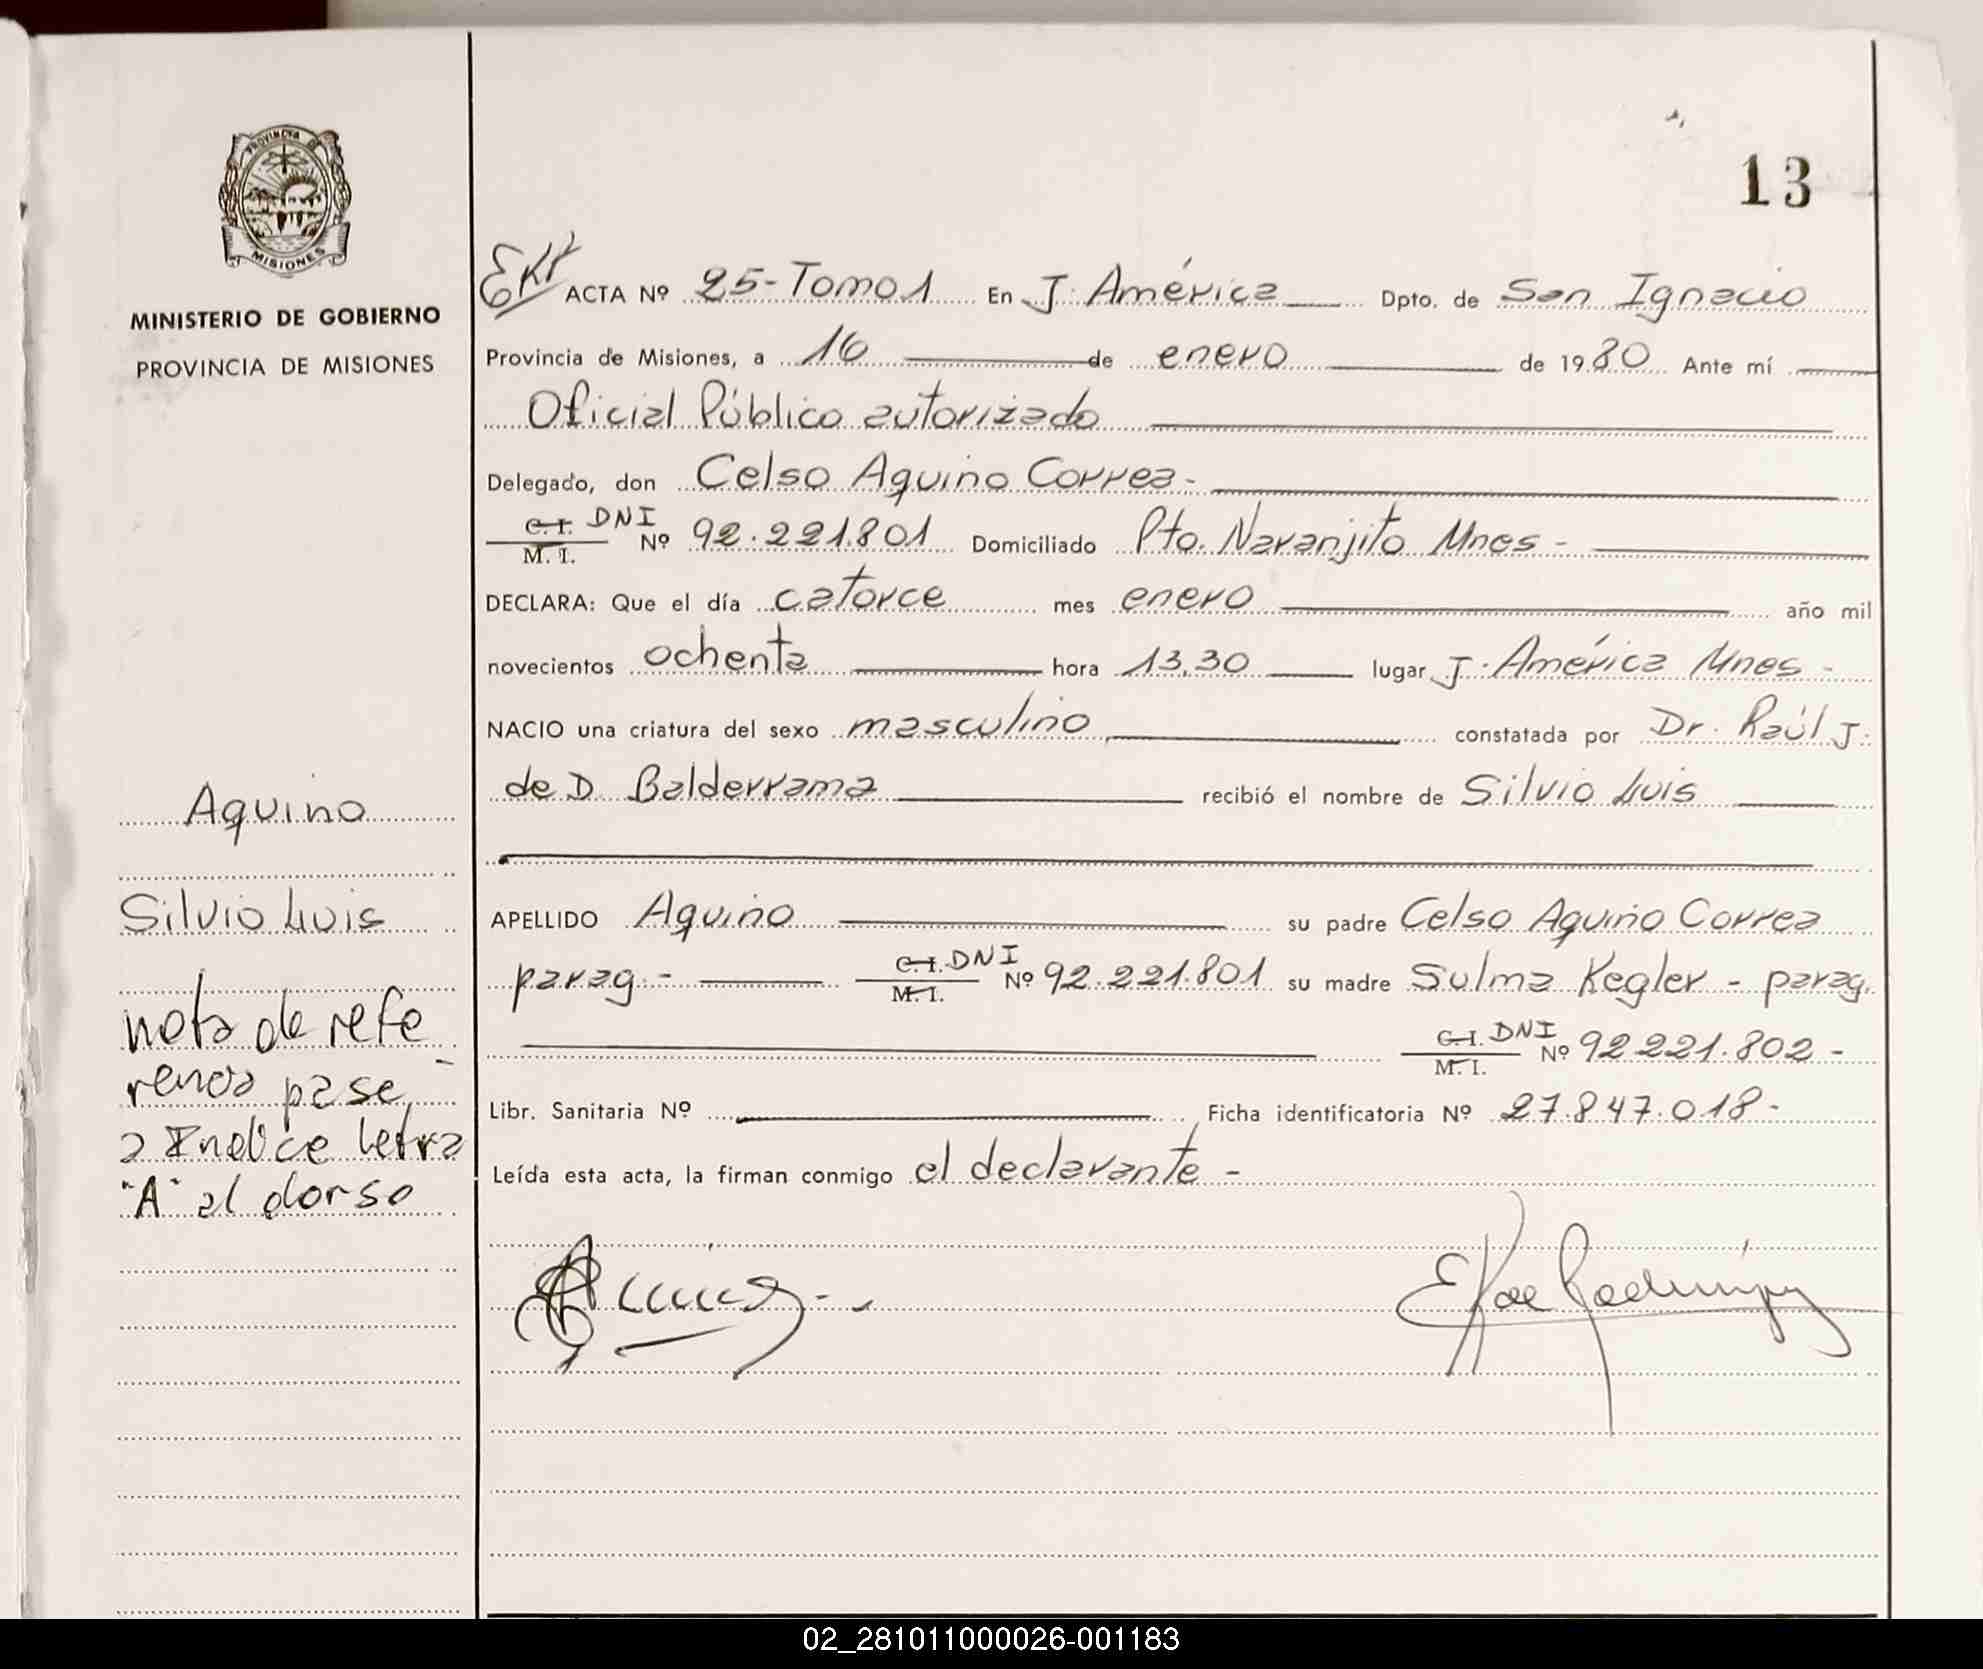 13
PROVINCIA DE
MISIONES
MINISTERIO DE GOBIERNO
PROVINCIA DE MISIONES
ACTA Nº 25-Tomo 1 En J. América Dpto. de San Ignacio
Provincia de Misiones, a 16 de enero de 1980 Ante mí
Oficial Público autorizado
Delegado, don Celso Aquino Correa-
C. I. DNI
M. I. Nº 92.221.801 Domiciliado Pto. Naranjito Mnes-
DECLARA: Que el día catorce mes enero año mil
novecientos ochenta hora 13,30 lugar J. América Mnes-
NACIO una criatura del sexo masculino constatada por Dr. Raúl J.
de D. Balderrama recibió el nombre de Silvio Luis
APELLIDO Aquino su padre Celso Aquino Correa
parag.- C. I. DNI M. I. Nº 92.221.801 su madre Sulma Kegler - parag.
C. I. DNI M. I. Nº 92221.802-
Libr. Sanitaria Nº Ficha identificatoria Nº 27.847.018-
Leída esta acta, la firman conmigo el declarante-
Aquino
Silvio Luis
nota de refe
rencia pase
a Indice letra
"A" al dorso
02_281011000026-001183